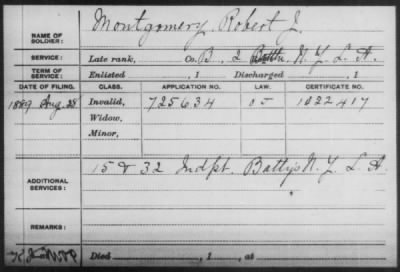 Montgomery, Robert J.
NAME OF SOLDIER:
SERVICE: Late rank, Co. B, 2 Battn. N. Y. L. A.
TERM OF SERVICE: Enlisted , 1 Discharged , 1
DATE OF FILING. CLASS. APPLICATION NO. LAW. CERTIFICATE NO.
1889 Aug. 28 Invalid, 725634 05 1022417
Widow,
Minor,
15 & 32 Indpt. Batty's N. Y. L. A.
ADDITIONAL SERVICES:
REMARKS:
Died , 1 , at